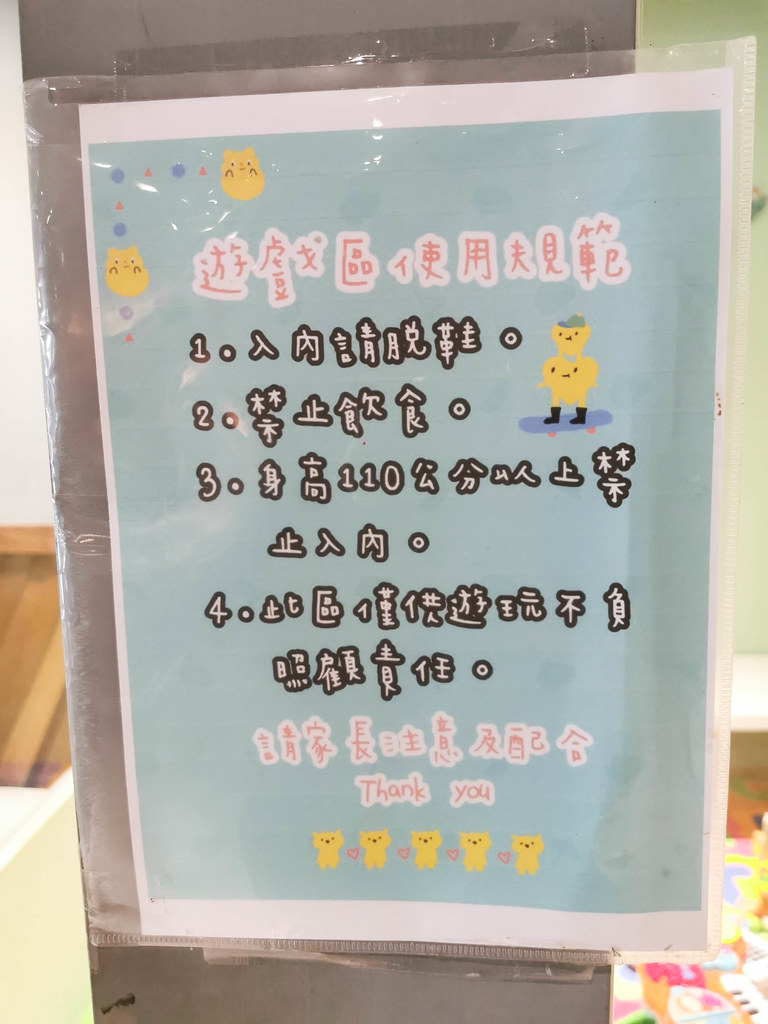 遊戲區使用規範
1。入內請脫鞋。
2。禁止飲食。
3。身高110公分以上禁
止入內。
4。此區僅供遊玩不負
照顧責任。
請家長注意及配合
Thank you